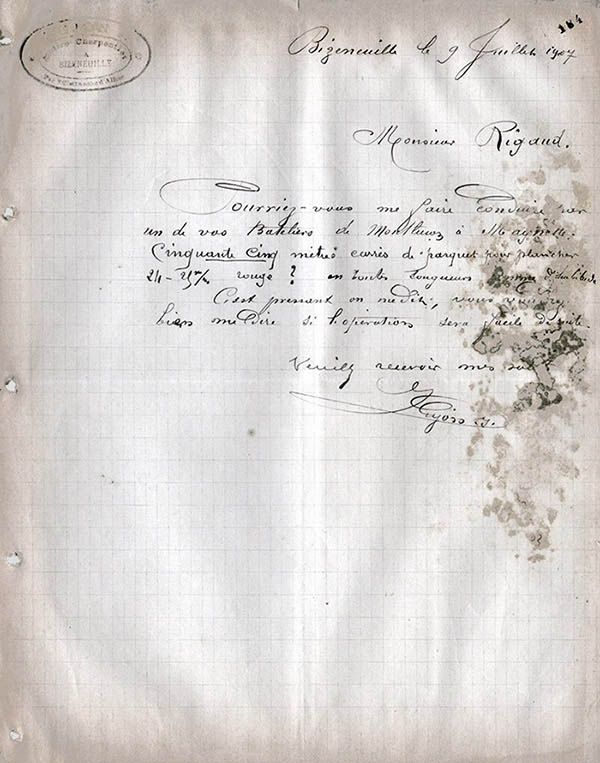 184
Maître Charpentier
A
BIZENEUILLE
Bizeneuille le 9 Juillet 1907
Monsieur Rigaud.
Pourriez-vous me faire conduire par
un de vos Bateliers de Montluçon à Magnette
Cinquante Cinq mètres carrés de parquet pour plancher
24 - 25 m/m rouge ? en toutes longueurs
C'est pressant on me dit, vous
bien me dire si l'opération sera facile de suite
Veuillez recevoir mes